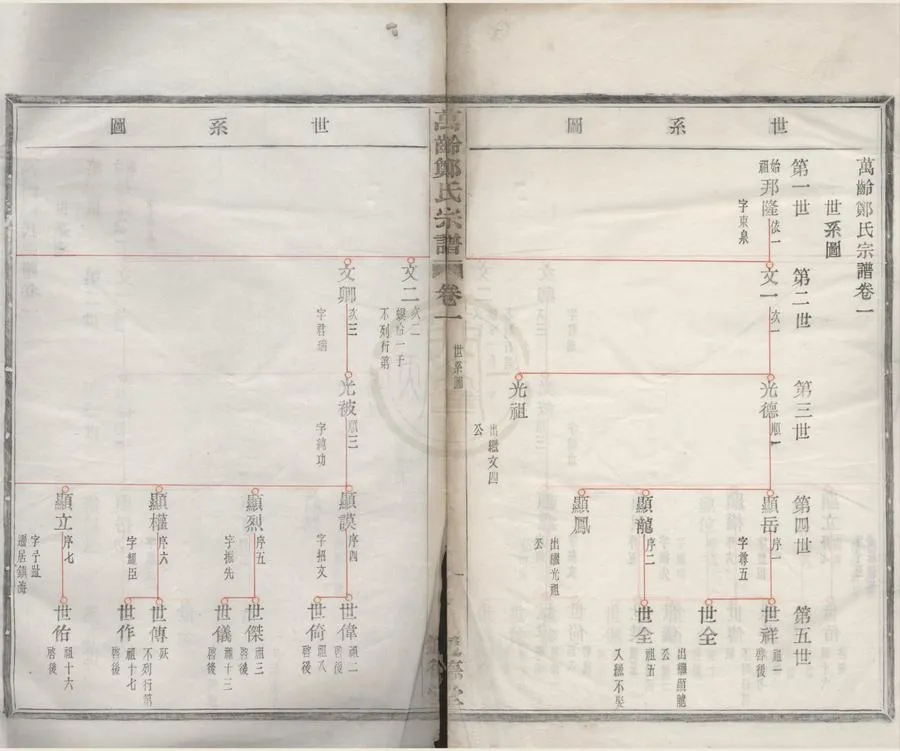 萬齡鄭氏宗譜卷一
世系圖
世系圖
第一世
始祖
邦隆
依一
字東泉
第二世
文一
次一
第三世
光德
順一
光祖
出繼文四公
第四世
顯岳
序一
字尊五
顯龍
序二
顯鳳
出繼光祖公
第五世
世祥
祖一
啓後
世全
出繼顯龍公
世全
祖五
入繼不娶
萬齡鄭氏宗譜
卷一
世系圖
一
世系圖
文二
次二
不列行第
文卿
次三
字君瑞
光被
順三
字鴻功
顯謨
序四
字招文
顯烈
序五
字振先
顯權
序六
字耀臣
顯立
序七
字予祉
遷居鎮海
世偉
祖二
啓後
世倚
祖八
啓後
世傑
祖三
啓後
世儀
祖十三
啓後
世傳
殀
不列行第
世作
祖十七
啓後
世佑
祖十六
啓後